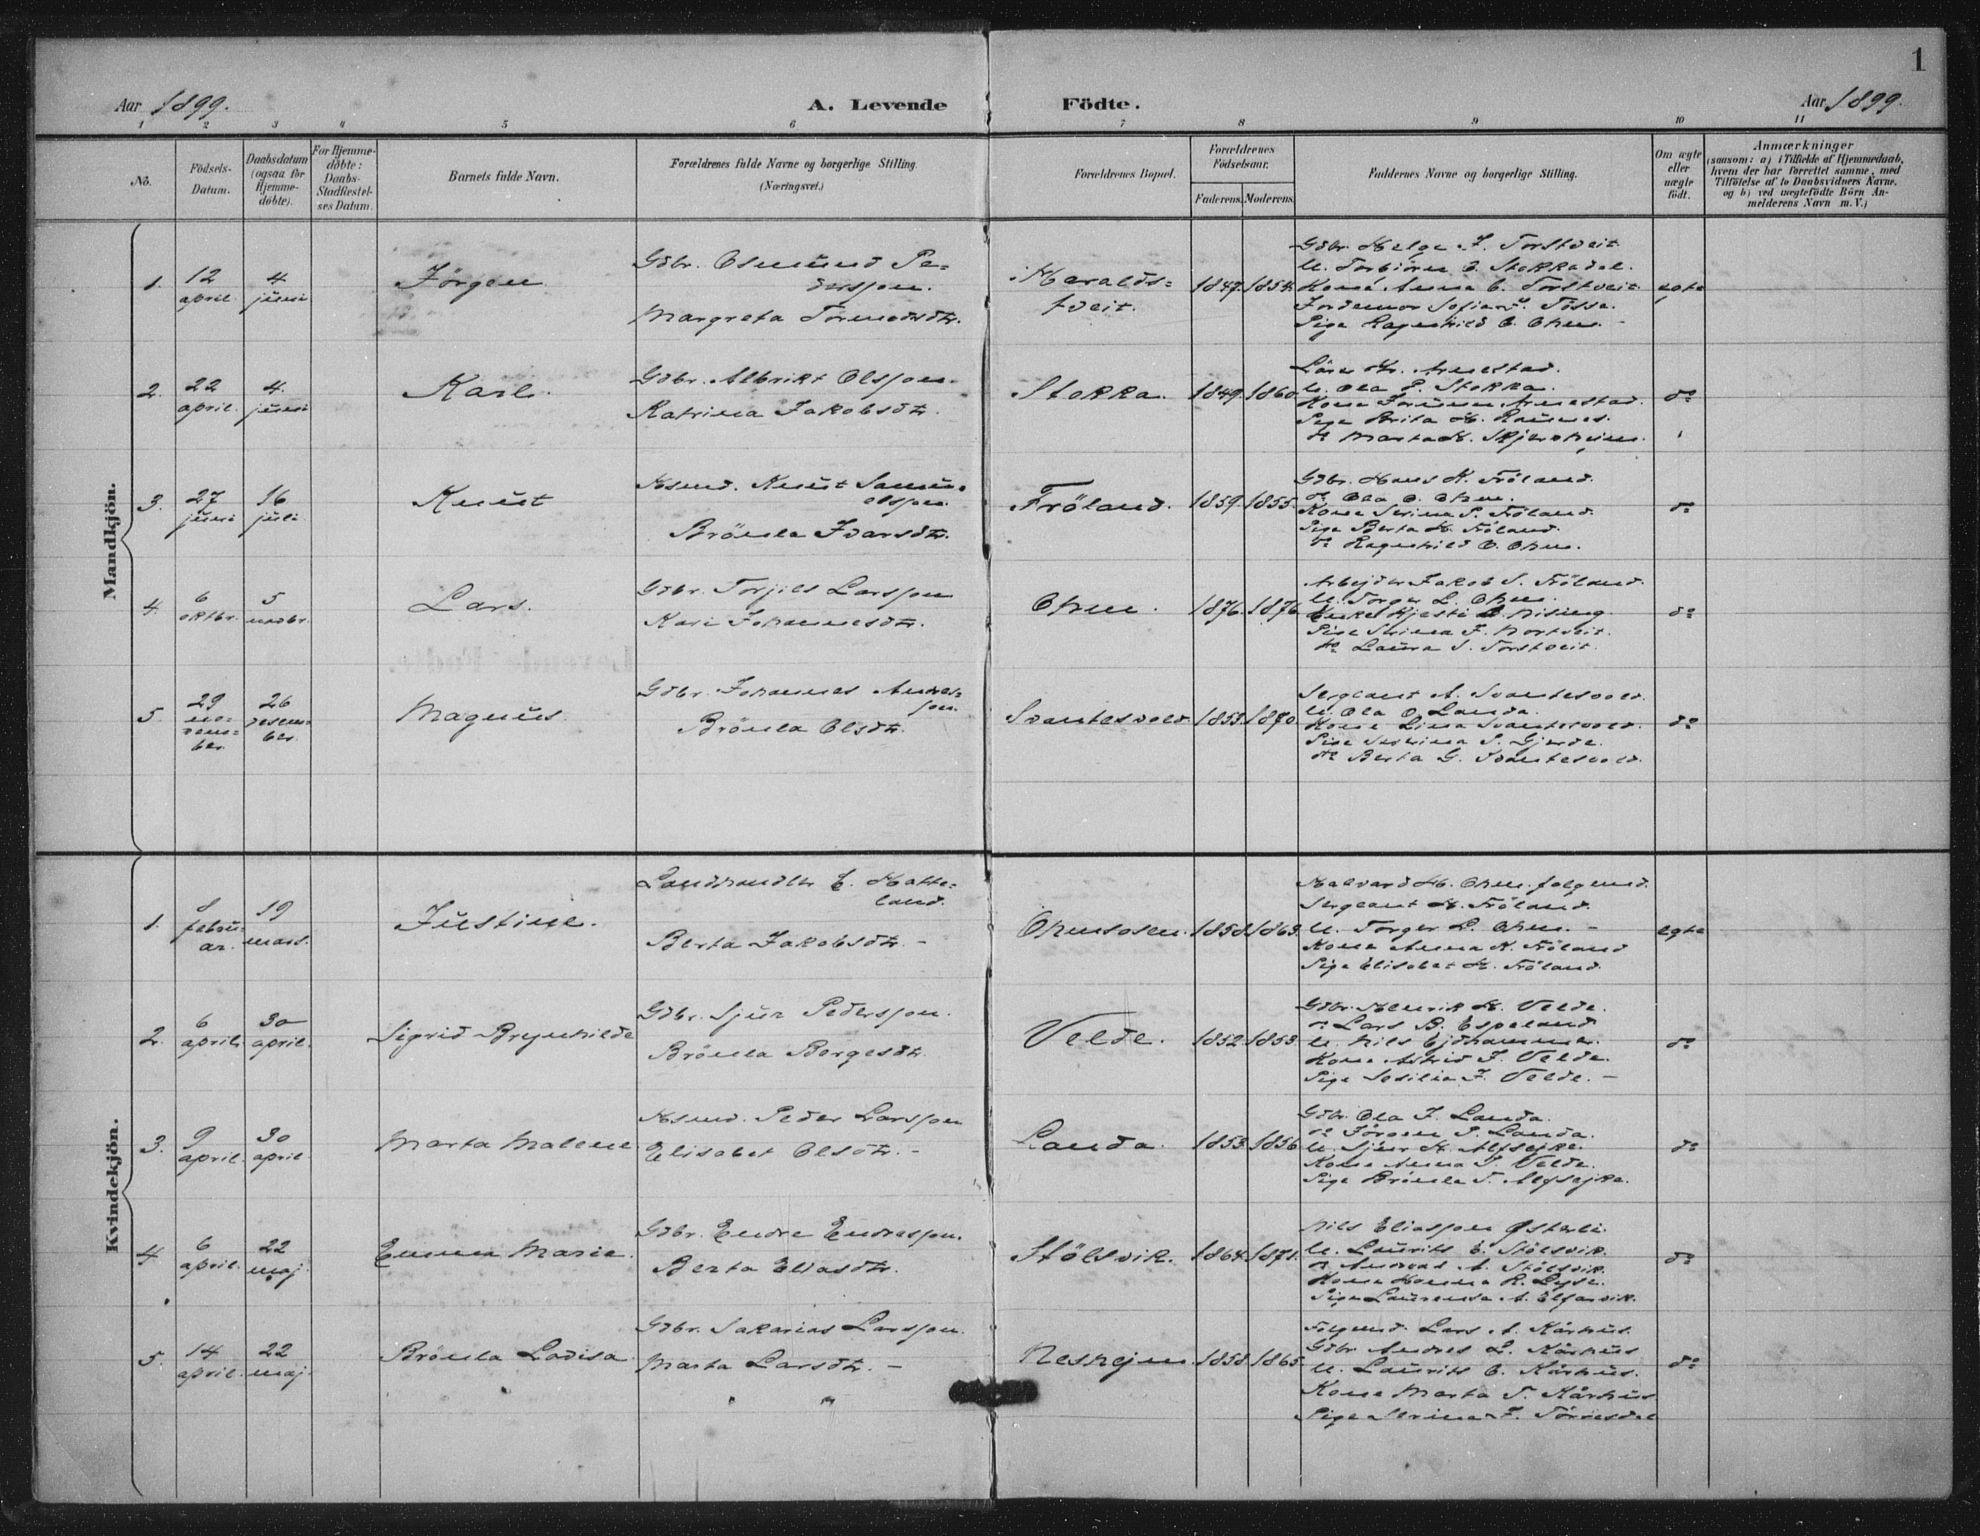 1
Aar 1899.
A. Levende
Födte.
Aar 1899.
1 2 3 4 5 6 7 8 9 10 11
No.
Födsels-
Datum.
Daabsdatum
(ogsaa for
Hjemme-
döbte).
For Hjemme-
döbte:
Daabs-
Stadfæstel-
ses Datum.
Barnets fulde Navn.
Forældrenes fulde Navne og borgerlige Stilling.
(Næringsvei.)
Forældrenes Bopæl.
Forældrenes
Födselsaar.
Faderens. Moderens.
Faddernes Navne og borgerlige Stilling.
Om ægte
eller
uægte
födt.
Anmærkninger
(saasom: a) i Tilfælde af Hjemmedaab,
hvem der har forrettet samme, med
Tilföielse af to Daabsvidners Navne,
og b) ved uægtefödte Börn An-
melderens Navn m. V.)
Mandkjön.
1. 12
april
4
juni
Jörgen
Gdbr. Osmund Pe-
dersson.
Margreta Tormodsdtr.
Haralds-
tveit.
1847. 1854.
Gdbr. Helge J. Torstveit
U. Torbiörn O. Stokkadal.
Kone Anna O. Torstveit
Jordemor Sofie J. Tössa.
Pige Ragnhild O. Ohm.
egte
2. 22
april.
4.
juni
Karl.
Gdbr. Albrikt Olsson.
Katrina Jakobsdtr.
Stokka.
1849. 1860.
Arnestad.
U. Ola P. Stokka.
Kone Jorunn Arnestad.
Pige Brita H. Raunes.
do Marta H. Skjersheim.
do
3. 27
juni
16
juli
Knut
Husmd. Knut Samu-
elsson.
Brönla Ivarsdtr.
Fröland.
1859. 1855.
Gdbr. Hans K. Fröland.
do Ola O. Ohm.
Kone Serina P. Fröland.
Pige Berta H. Fröland.
do Ragnhild O. Ohm.
do
4. 6
oktbr.
5
novbr.
Lars.
Gdbr. Torjils Larsson
Kari Johannesdtr.
Ohm.
1876. 1876.
Arbejder Jakob S. Fröland.
U. Torger L. Ohm.
Pige Serina J. Nortveit.
do Laura S. Torstveit.
do
5. 29
no-
vem-
ber.
26
desem-
ber.
Magnus.
Gdbr. Johannes Andres-
son.
Brönla Olsdtr.
Svantesvold
1853. 1870.
Sergeant A. Svantesvold.
U. Ola O. Landa.
Kone Lina Svantesvold.
Pige Serina S. Gjerde.
do Berta G. Svantesvold.
do
Kvindekjön.
1. 1
febru-
ar.
19
mars.
Justine.
Landhandler E. Hatte-
land.
Berta Jakobsdtr.
Ohmsosen.
1858. 1863.
Halvard H. Ohm. folgemd.
Sergeant H. Fröland.
U. Torger L. Ohm.
Kone Anna K. Fröland
Pige Elisabet H. Fröland.
egte
2. 6
april.
30
april.
Sigrid Brynhilde
Gdbr. Sjur Pedersson.
Brönla Borgesdtr.
Velde.
1852. 1853.
Gdbr. Henrik H. Velde.
do Lars B. Espeland
U. Nils Ejdhammer.
Kone Astrid J. Velde.
Pige Sesilia J. Velde.
do
3. 9
april.
30
april.
Marta Malene
Husmd. Peder Larsson
Elisabet Olsdtr.
Landa.
1853. 1856.
Gdbr. Ola J. Landa.
do Jörgen P. Landa.
U. Sjur H. Alfsejke.
Kone Anna J. Velde.
Pige Brönla T. Alfsejke.
do
4 6
april.
22
maj.
Emma Marie.
Gdbr. Endre Endresson.
Berta Eliasdtr.
Stölsvik.
1864. 1871.
Nils Eliasson Österli.
U. Laurits E. Stölsvik.
do Andreas A. Stölsvik.
Kone Hanna R. Lyse.
Pige Laurensa A. Elfarvik.
do
5. 14
april.
22
maj.
Brönla Lovisa
Gdbr. Sakarias Larsson.
Marta Larsdtr.
" "
Neshejm
1858. 1865.
Folgemd. Lars A. Kårhus.
Gdbr. Andres L. Kårhus
U. Laurits O. Kårhus.
Kone Marta T. Kårhus
Pige Serina J. Törresdal
do